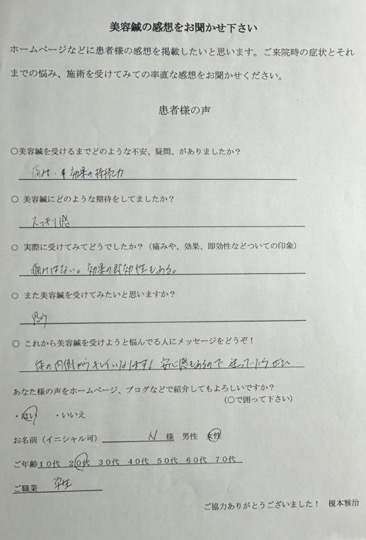 美容鍼の感想をお聞かせ下さい
ホームページなどに患者様の感想を掲載したいと思います。ご来院時の症状とそれ
までの悩み、施術を受けてみての率直な感想をお聞かせください。
患者様の声
○美容鍼を受けるまでどのような不安、疑問、がありましたか?
痛サ・効果の持続力
○ 美容鍼にどのような期待をしてましたか?
スッキリ感
○ 実際に受けてみてどうでしたか?(痛みや、効果、即効性などついての印象)
痛みはない。効果の即効性もある。
○ また美容鍼を受けてみたいと思いますか?
思う
○ これから美容鍼を受けようと悩んでる人にメッセージをどうぞ!
体の内側からキレイになれます! 安心感もあるので 迷っていたらぜひ
あなた様の声をホームページ、ブログなどで紹介してもよろしいですか?
(○で囲って下さい)
・はい ・いいえ
お名前(イニシャル可) N 様 男性 女性
ご年齢10代 20代 30代 40代 50代 60代 70代
ご職業 学生
ご協力ありがとうございました! 榎本雅治